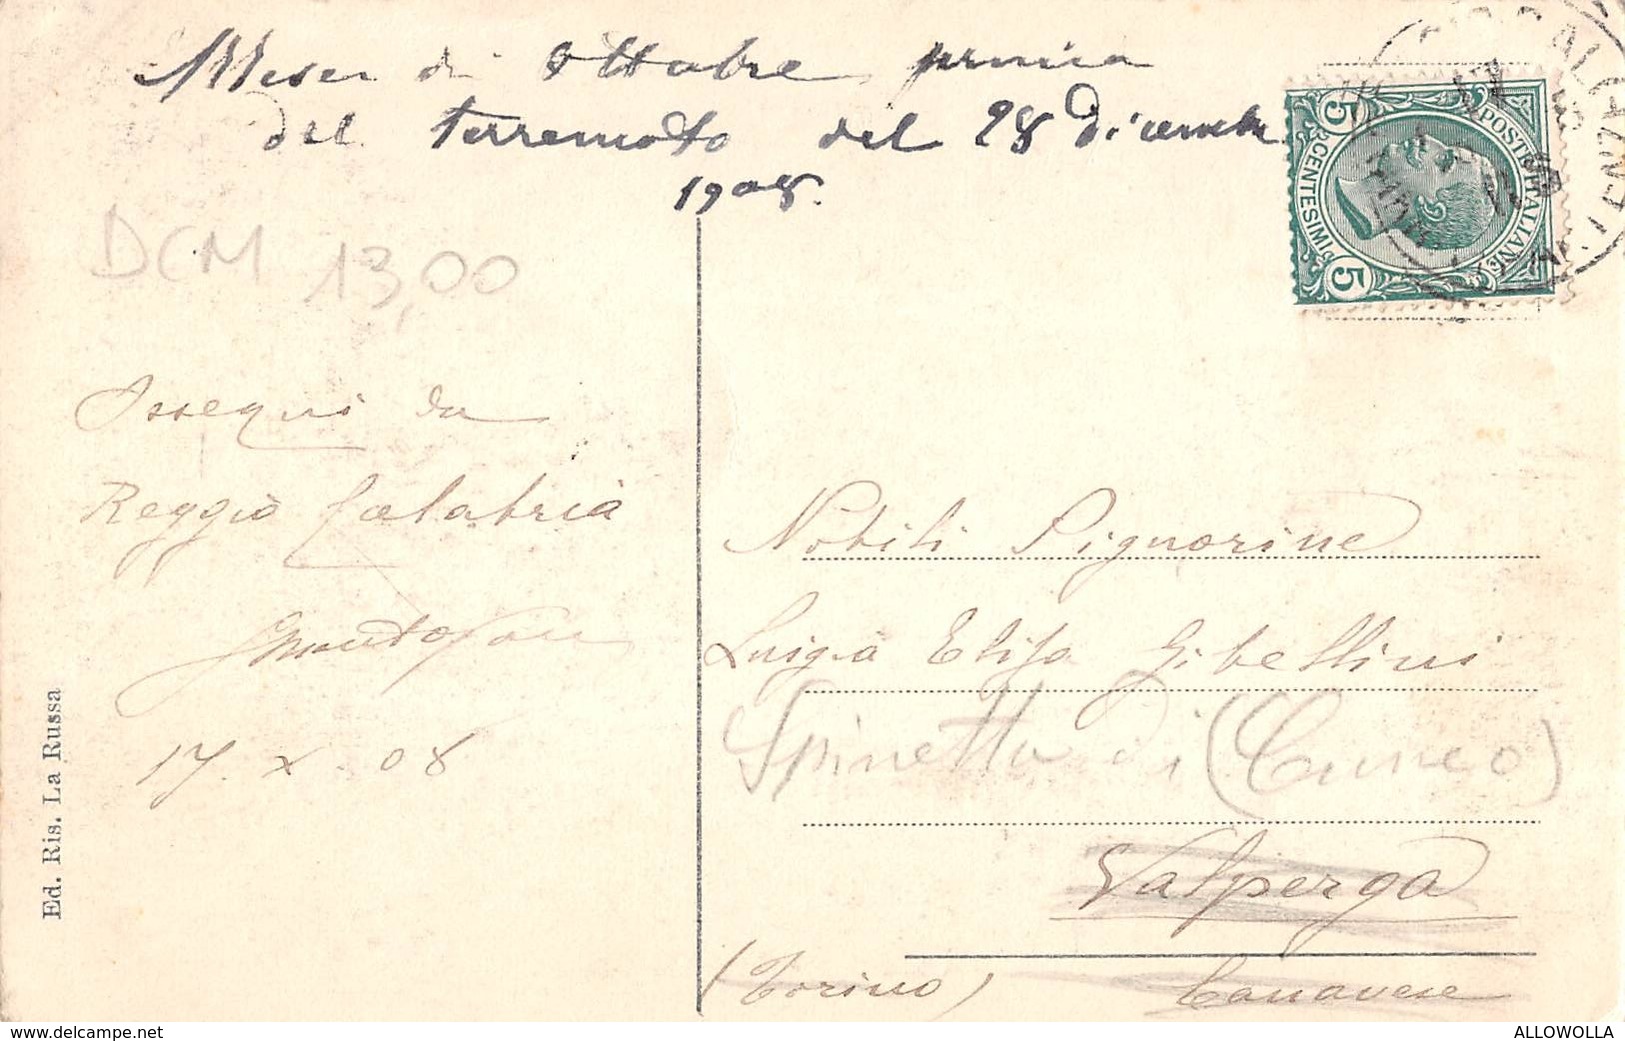 Mese di Ottobre prima
del terremoto del 28 dicembre
1908.
DCM 13,00
Ossequi da
Reggio Calabria
17. X. 08
Ed. Ris. La Russa
POSTE ITALIANE
CENTESIMI
5
5
Nobili Signorine
Luigia Elisa Gibellini
Spinetta di (Cuneo)
Valperga
(Torino) Canavese
delcampe.net
ALLOWOLLA